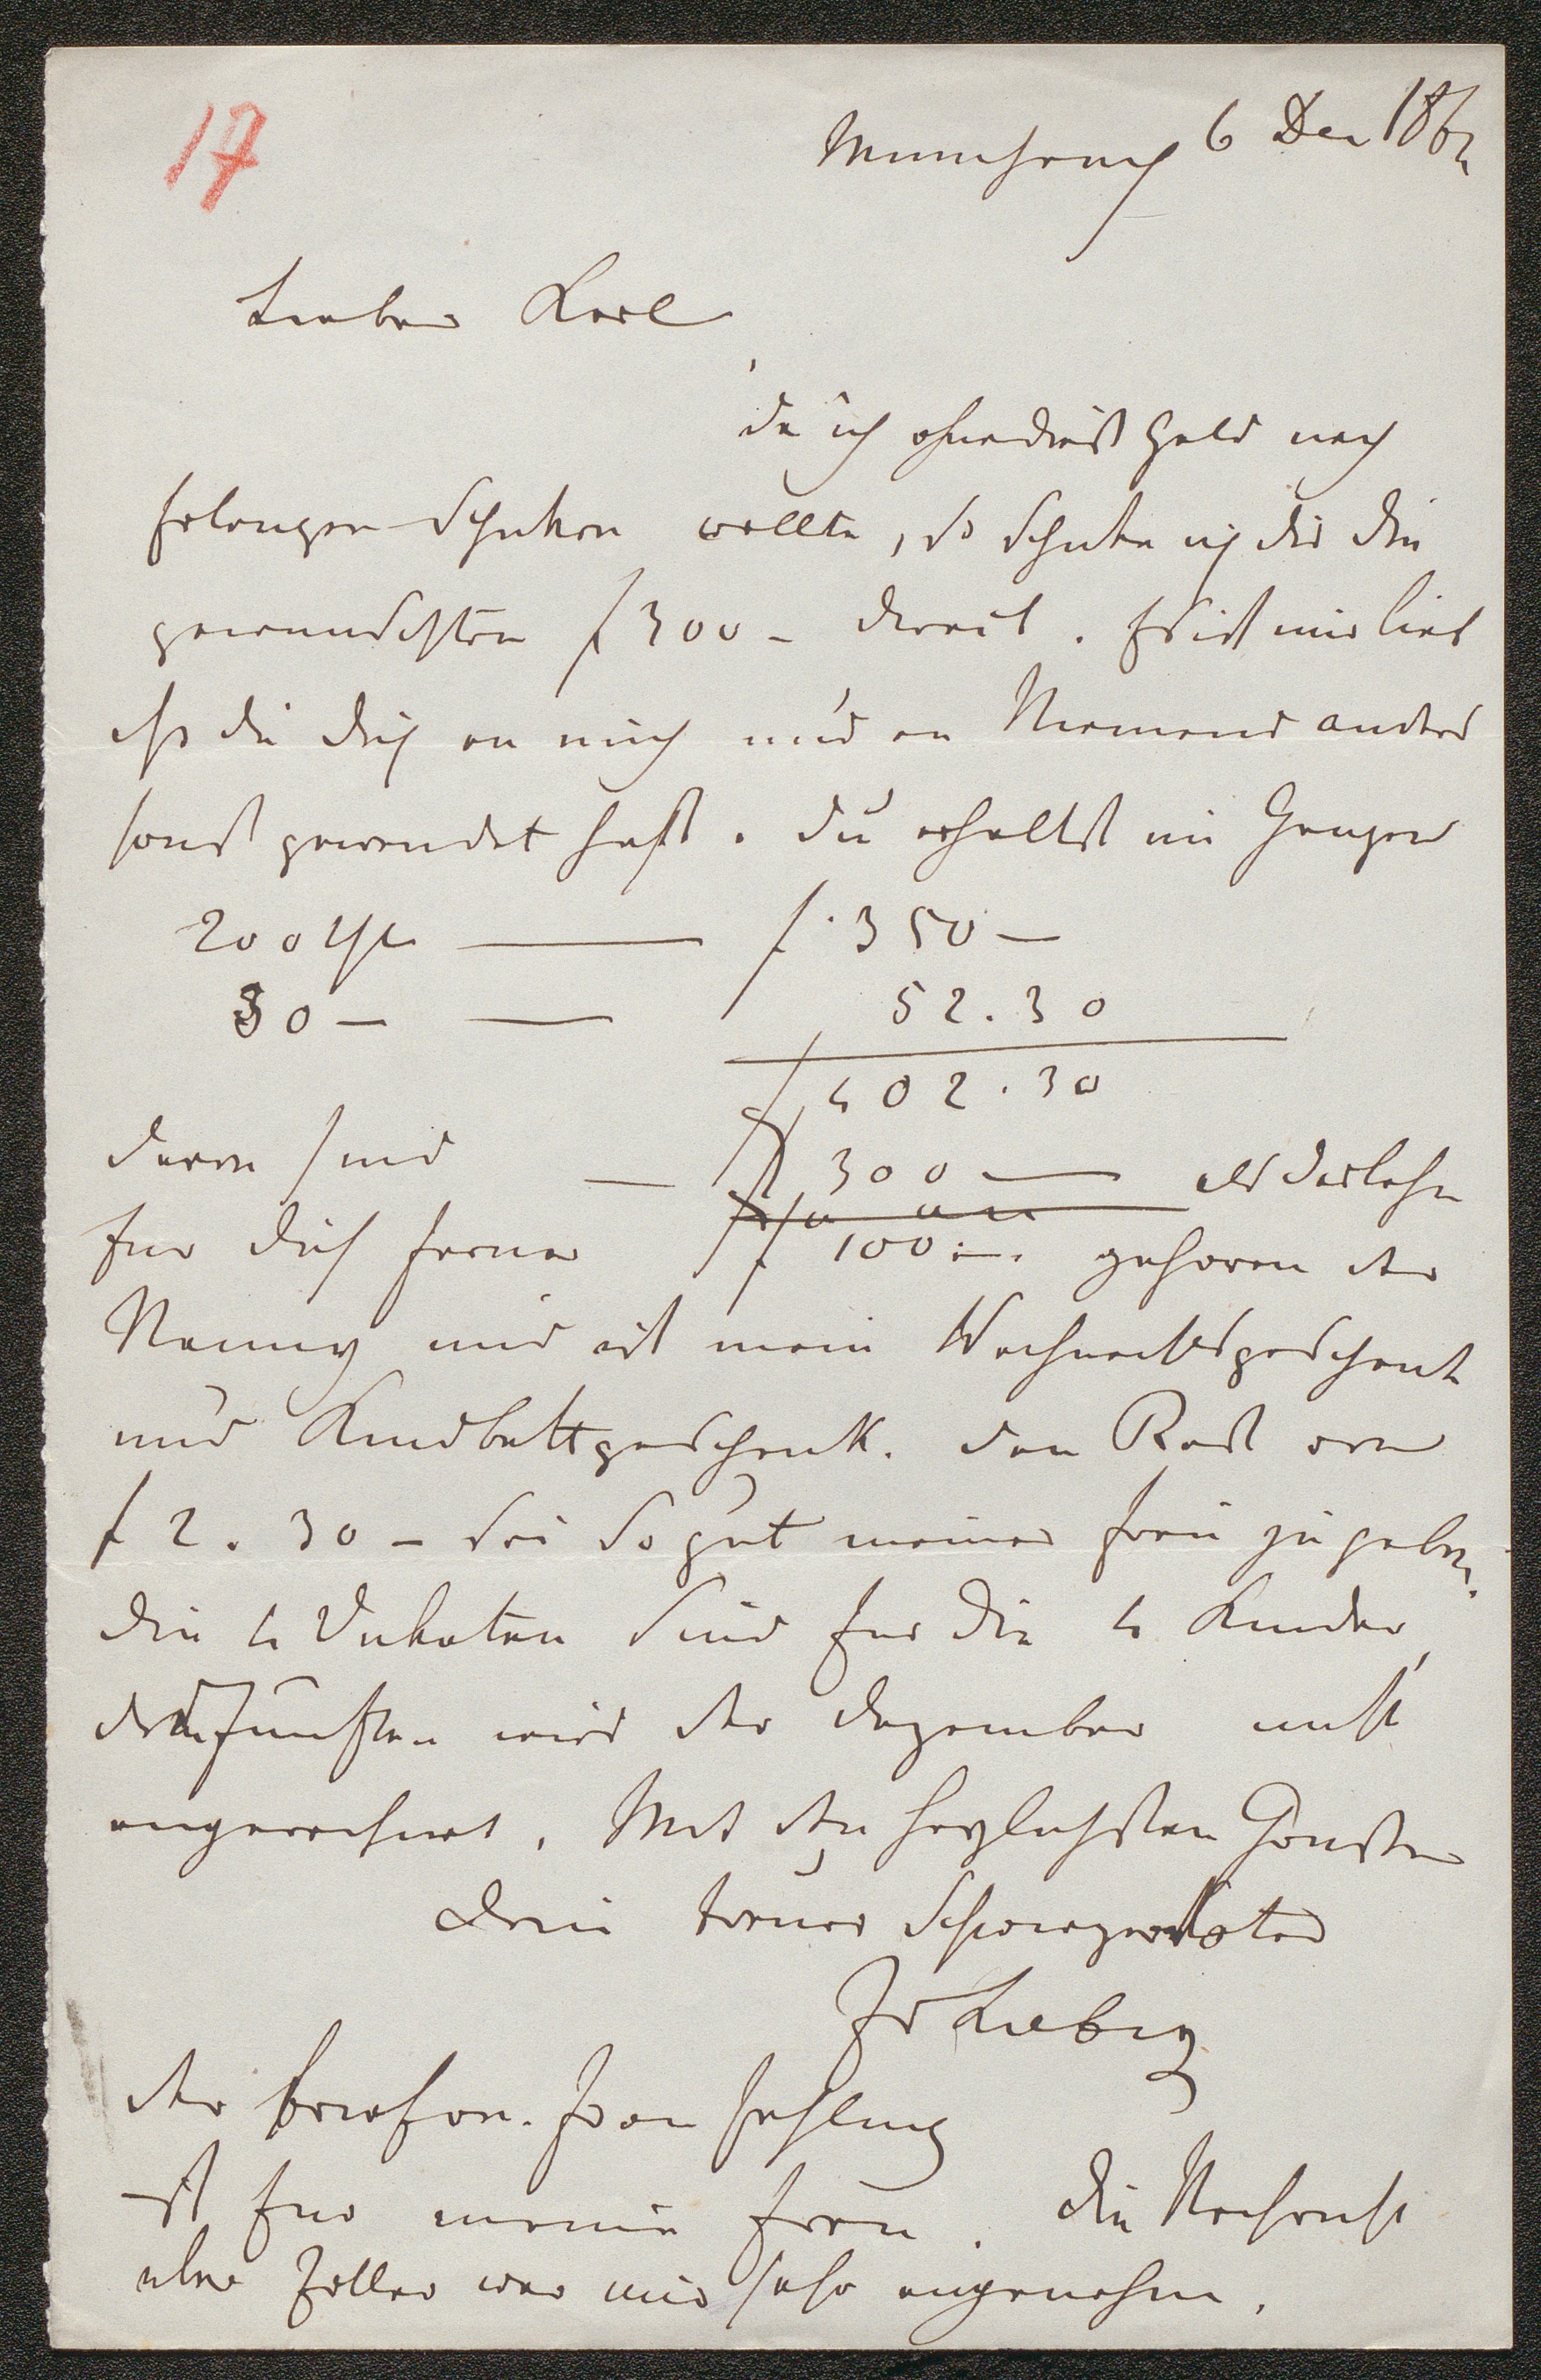 17
München 6 Dez 1862
Lieber Karl
da ich ohnedieß Geld nach
Erlangen schicken wollte, so schicke ich dir die
gewünschten f 300 - direct. Es ist mir lieb
daß du dich an mich und an Niemand anders
sonst gewendet hast. Du erhältst im Ganzen
200 Thl — f. 350 —
30 — — 52.30
f 402.30
davon sind — f 300 — als Darlehn
für dich ferner f 100 —. gehören der
Nanny und ist mein Weihnachtsgeschenk
und Kindbettgeschenk. Den Rest von
f 2.30 - sei so gut meiner Frau zu geben.
Die 4 Dukaten sind für die 4 Kinder,
dem fünften wird der Dezember nicht
angerechnet. Mit den herzlichsten Grüßen
Dein treuer Schwiegervater
Jv Liebig
Der Brief von Frau Fehling
ist für meine Frau. Die Nachricht
über Zeller war mir sehr angenehm.